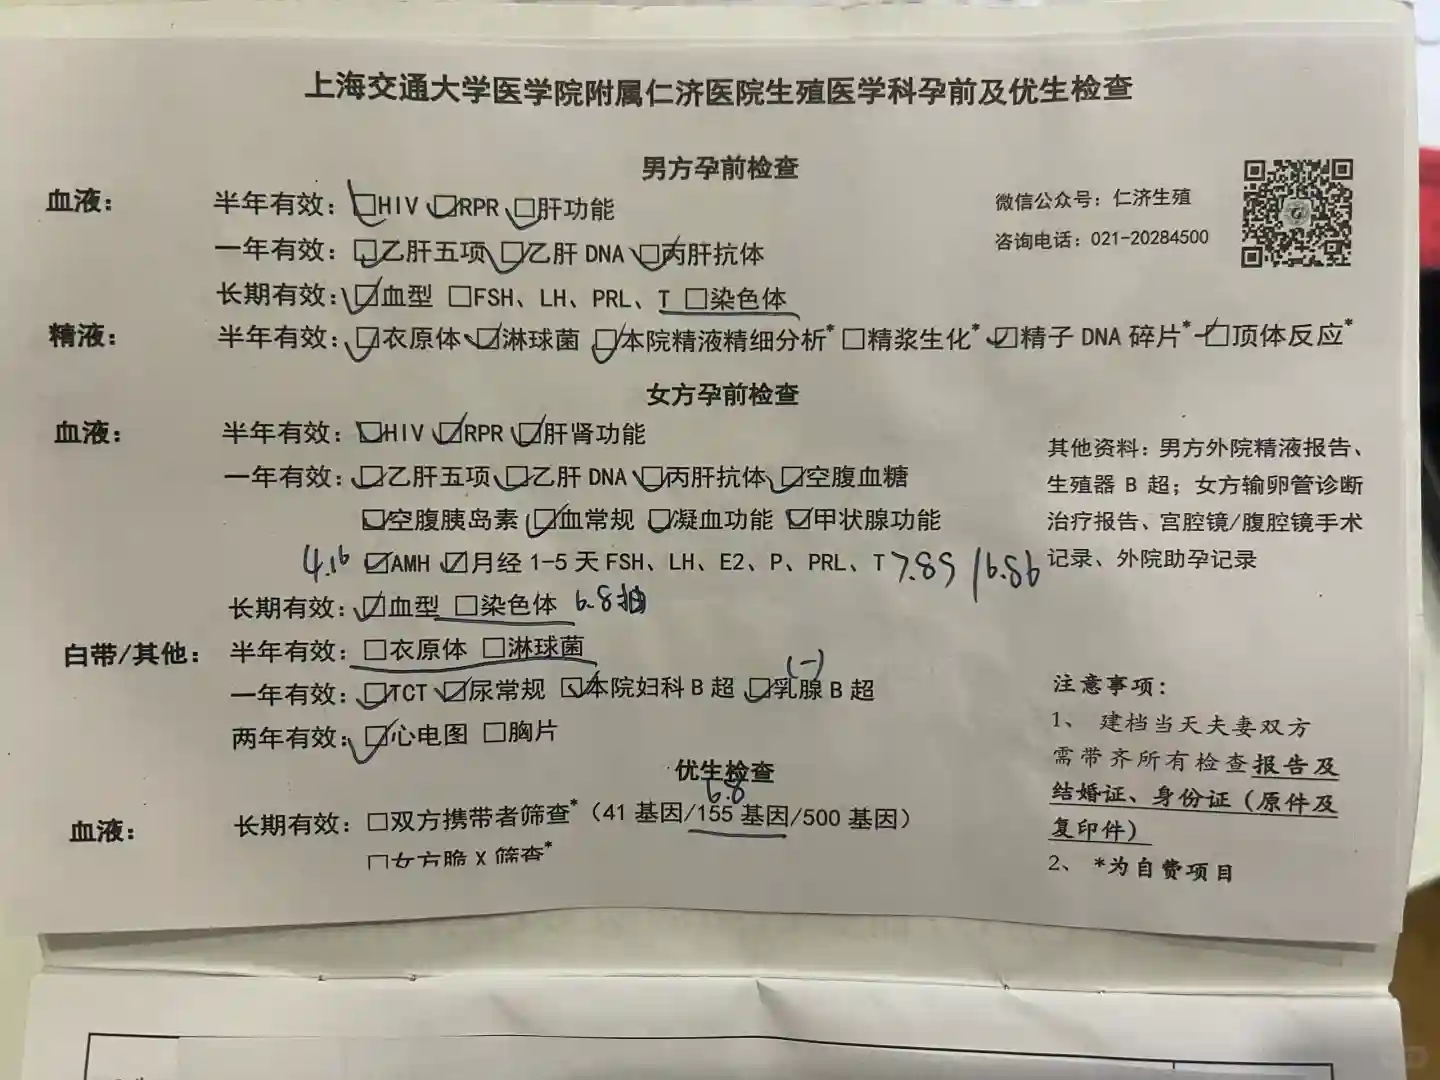 上海交通大学医学院附属仁济医院生殖医学科孕前及优生检查
男方孕前检查
血液： 半年有效：□HIV □RPR □肝功能
微信公众号：仁济生殖
一年有效：□乙肝五项 □乙肝 DNA □丙肝抗体
咨询电话：021-20284500
长期有效：□血型 □FSH、LH、PRL、T □染色体
精液： 半年有效：□衣原体 □淋球菌 □本院精液精细分析* □精浆生化* □精子 DNA 碎片* □顶体反应*
女方孕前检查
血液： 半年有效：□HIV □RPR □肝肾功能
一年有效：□乙肝五项 □乙肝 DNA □丙肝抗体 □空腹血糖
□空腹胰岛素 □血常规 □凝血功能 □甲状腺功能
4.16 □AMH □月经 1-5 天 FSH、LH、E2、P、PRL、T 7.89 /6.86
长期有效：□血型 □染色体 6.8抽
其他资料：男方外院精液报告、
生殖器 B 超；女方输卵管诊断
治疗报告、宫腔镜/腹腔镜手术
记录、外院助孕记录
白带/其他： 半年有效：□衣原体 □淋球菌
(-)
一年有效：□TCT □尿常规 □本院妇科 B 超 □乳腺 B 超
两年有效：□心电图 □胸片
优生检查
6.8
血液： 长期有效：□双方携带者筛查*（41 基因/155 基因/500 基因）
□女方脆 X 筛查*
注意事项：
1、 建档当天夫妻双方
需带齐所有检查报告及
结婚证、身份证（原件及
复印件）
2、 *为自费项目